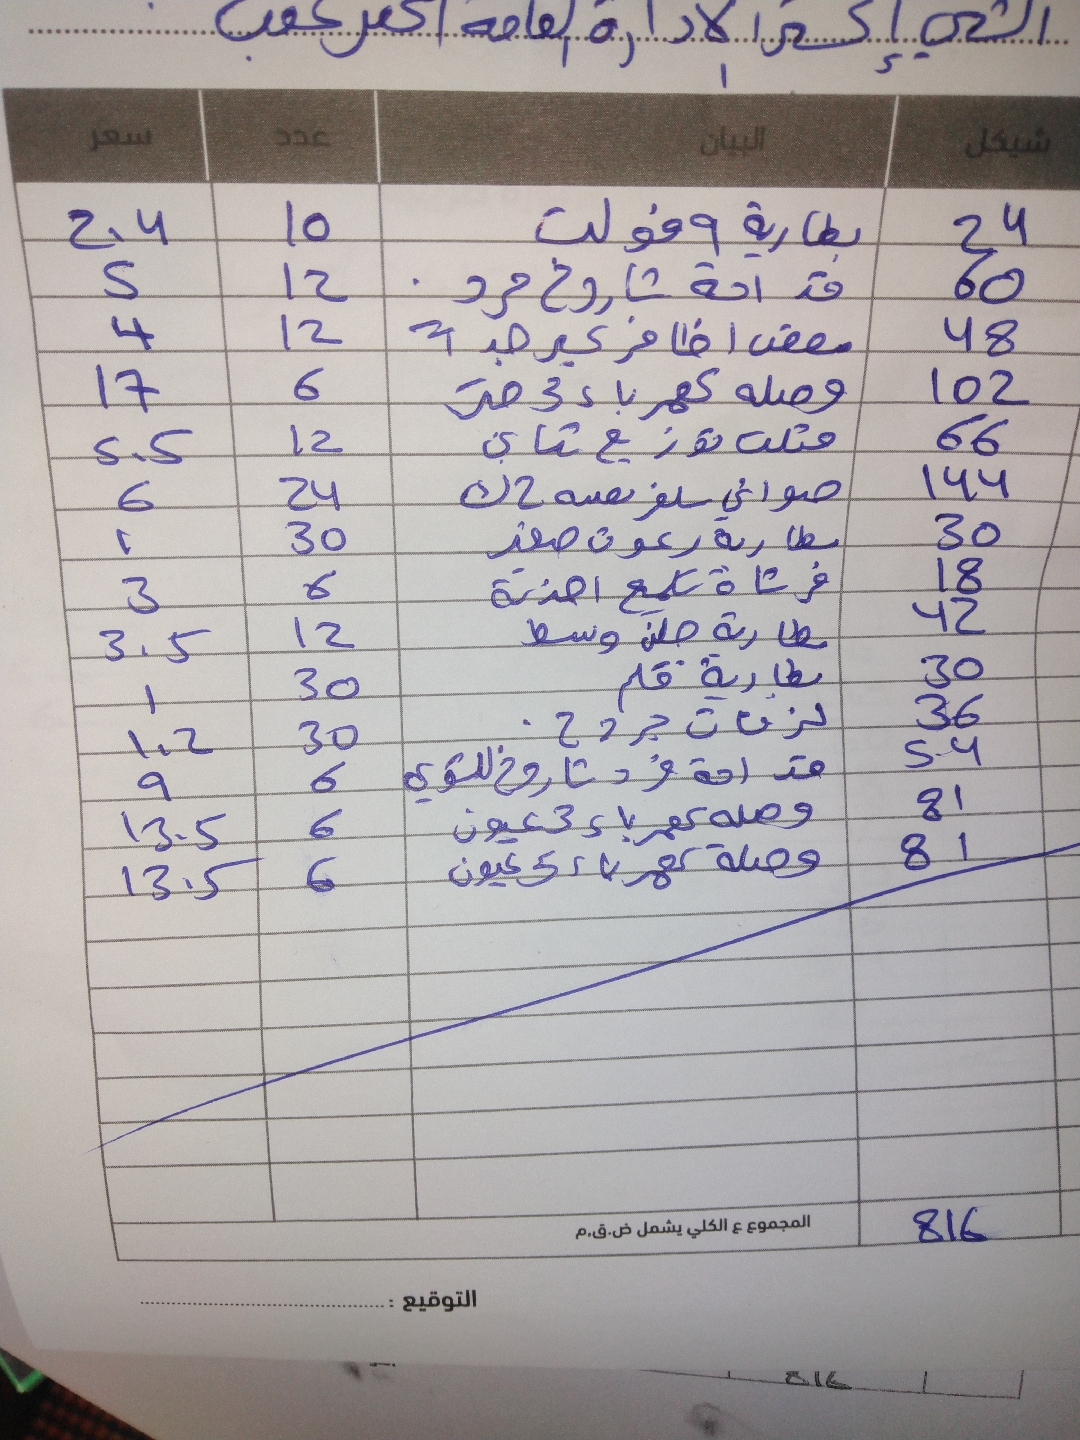 الإدارة العامة
شيكل البيان عدد سعر
24 بطارية 9 فولت 10 2.4
60 قداحة شاروخ مرد 12 5
48 مقص اظافر كبير 12 4
102 وصله كهرباء 3 متر 6 17
66 مثلث توزيع شامي 12 5.5
144 صواني سلفر نمره 2 ك 24 6
30 بطارية رموت صغير 30 1
18 فرشاة تلميع احذية 6 3
42 بطارية وسط 12 3.5
30 بطارية قلم 30 1
36 لزقات جروح 30 1.2
54 قداحة شاروخ 6 9
81 وصله كهرباء 3 عيون 6 13.5
81 وصلة كهرباء 5 عيون 6 13.5
المجموع ع الكلي يشمل ض.ق.م 816
التوقيع :
816